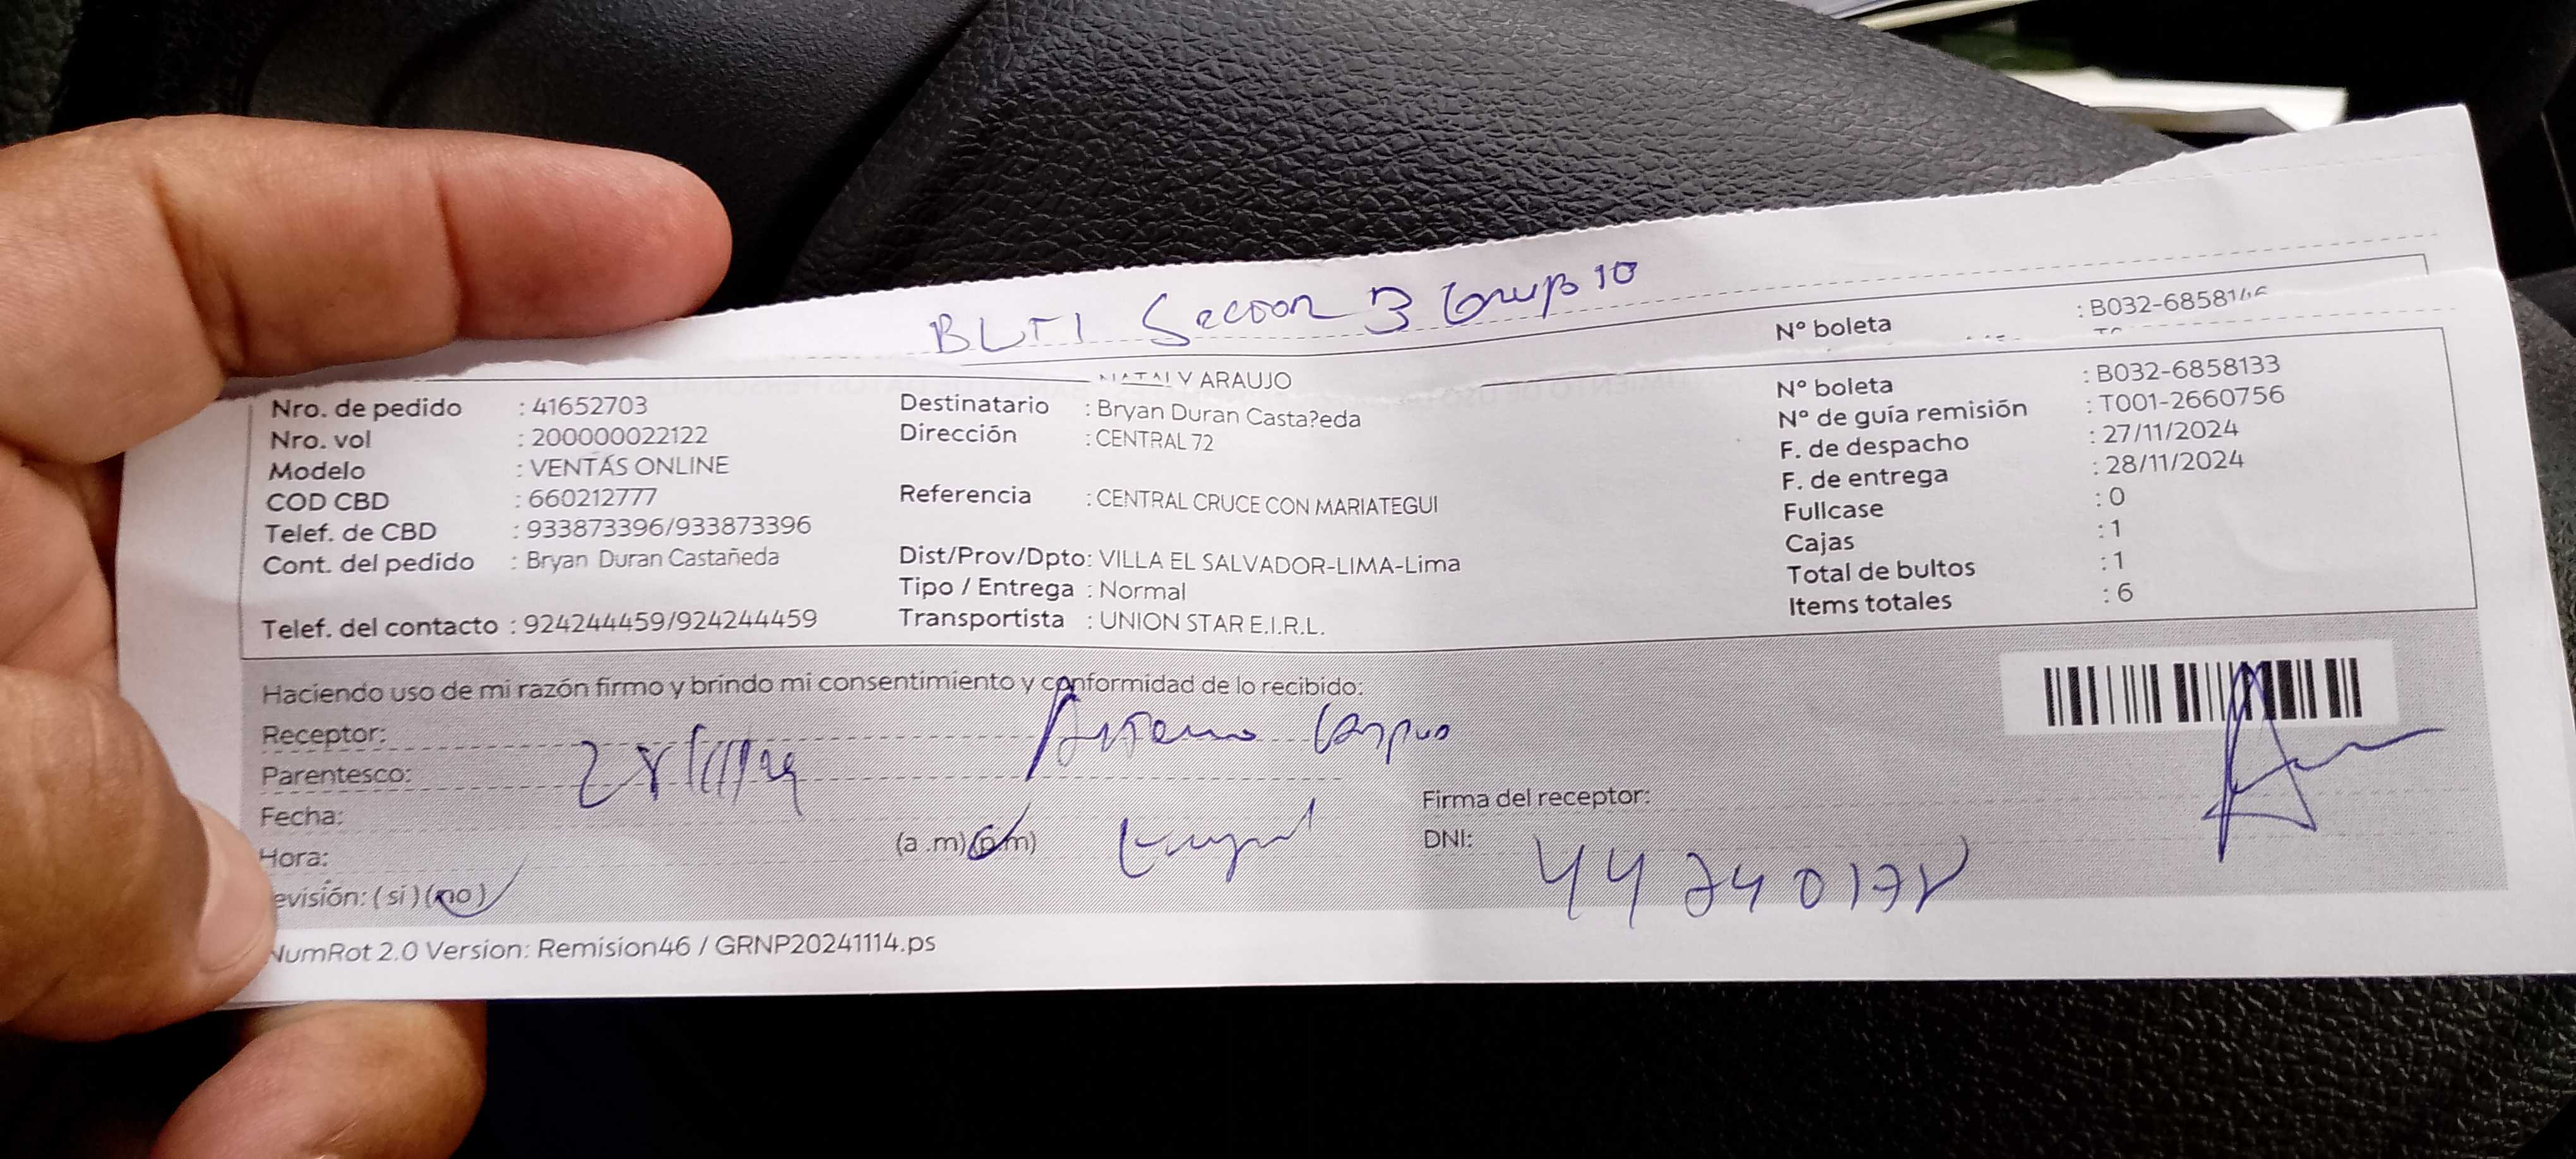 BLTI Sector 3 Grupo 10
Nº boleta : B032-6858146
NATALY ARAUJO
Nro. de pedido : 41652703 Destinatario : Bryan Duran Casta?eda Nº boleta : B032-6858133
Nro. vol : 200000022122 Dirección : CENTRAL 72 Nº de guía remisión : T001-2660756
Modelo : VENTAS ONLINE F. de despacho : 27/11/2024
COD CBD : 660212777 Referencia : CENTRAL CRUCE CON MARIATEGUI F. de entrega : 28/11/2024
Telef. de CBD : 933873396/933873396 Fullcase : 0
Cont. del pedido : Bryan Duran Castañeda Dist/Prov/Dpto: VILLA EL SALVADOR-LIMA-Lima Cajas : 1
Tipo / Entrega : Normal Total de bultos : 1
Telef. del contacto : 924244459/924244459 Transportista : UNION STAR E.I.R.L. Items totales : 6
Haciendo uso de mi razón firmo y brindo mi consentimiento y conformidad de lo recibido:
Receptor:
Parentesco: 28/11/24
Fecha: Firma del receptor:
Hora: (a .m)(p.m) DNI: 44740178
evisión: ( si ) (no)
NumRot 2.0 Version: Remision46 / GRNP20241114.ps